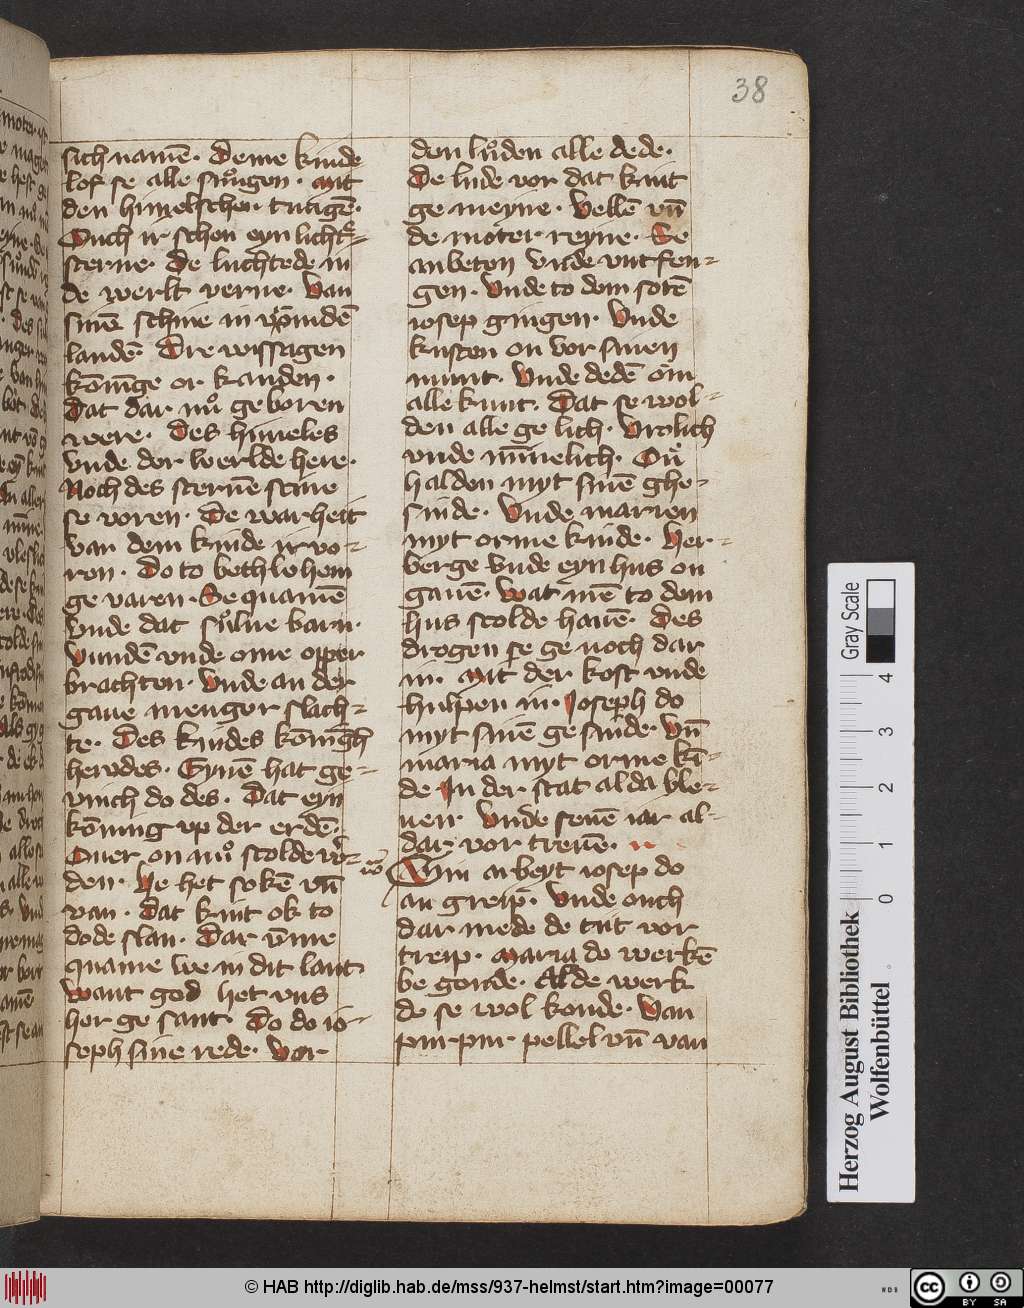 38
sich namē. Deme kinde
lof se alle sungen. Mit
den himelschen. tungē.
Ouch ir schen eyn licht͛
sterne. De luchtede in
de werlt verne. Van
sinē schine in vrōmdē
landē. Dre wissagen
kōnīge or kanden.
Dat dar nů geboren
were. Des himeles
vnde der werlde here.
Noch des sternē scine
se voren. De warheit
van dem kinde irvo-
ren. Do to bethlehem
ge varen. Se quamē
vnde dat sůlue barn.
Vundē vnde ome opper
brachten. Vnde an der
gaue menger slach-
te. Des kindes kōnīgh
herodes. Eynē hat ge-
vinch do des. Dat eyn
kōning vp der erdē.
Ouer on nů scolde w͛-
den. He het sokē vn̄
van. Dat kint ok to
dode slan. Dar v̄me
quame we in dit lant
Want god het vns
her ge sant. Do do io-
seph sine rede. Vor
den lůden alle dede.
De lude vor dat kint
ge meyne. Vellē vn̄
de moter reyne. Se
anbeten vnde vntfen-
gen. Vnde to dem sotē
iosep gingen. Vnde
kusten on vor sinen
munt. Vnde dedē om
alle kunt. Dat se wol-
den alle ge lich. Vrolich
vnde mī̄nelich. On̊
halden myt sinē ghe-
sinde. Vnde marien
myt orme kinde. Her-
berge vnde eyn hus on
gauē. Wat mē to dem
hus scolde hauē. Des
drogen se ge noch dar
in. Mit der kost vnde
hulpen in. Joseph do
myt sinē ge sinde. Vn̄
maria myt orme kī-
de. In der stat alda ble-
uen. Vnde seuē iar al-
dar vor treuē.
Sin arbeyt iosep do
an greip. Vnde ouch
dar mede de tiit vor
treip. Maria do werkē
be gonde. Al de werk
de se wol konde. Van
purpur pellel vn̄ van
Gray Scale
4
3
2
1
0
Herzog August Bibliothek
Wolfenbüttel
© HAB http://diglib.hab.de/mss/937-helmst/start.htm?image=00077
WDB
cc
BY SA